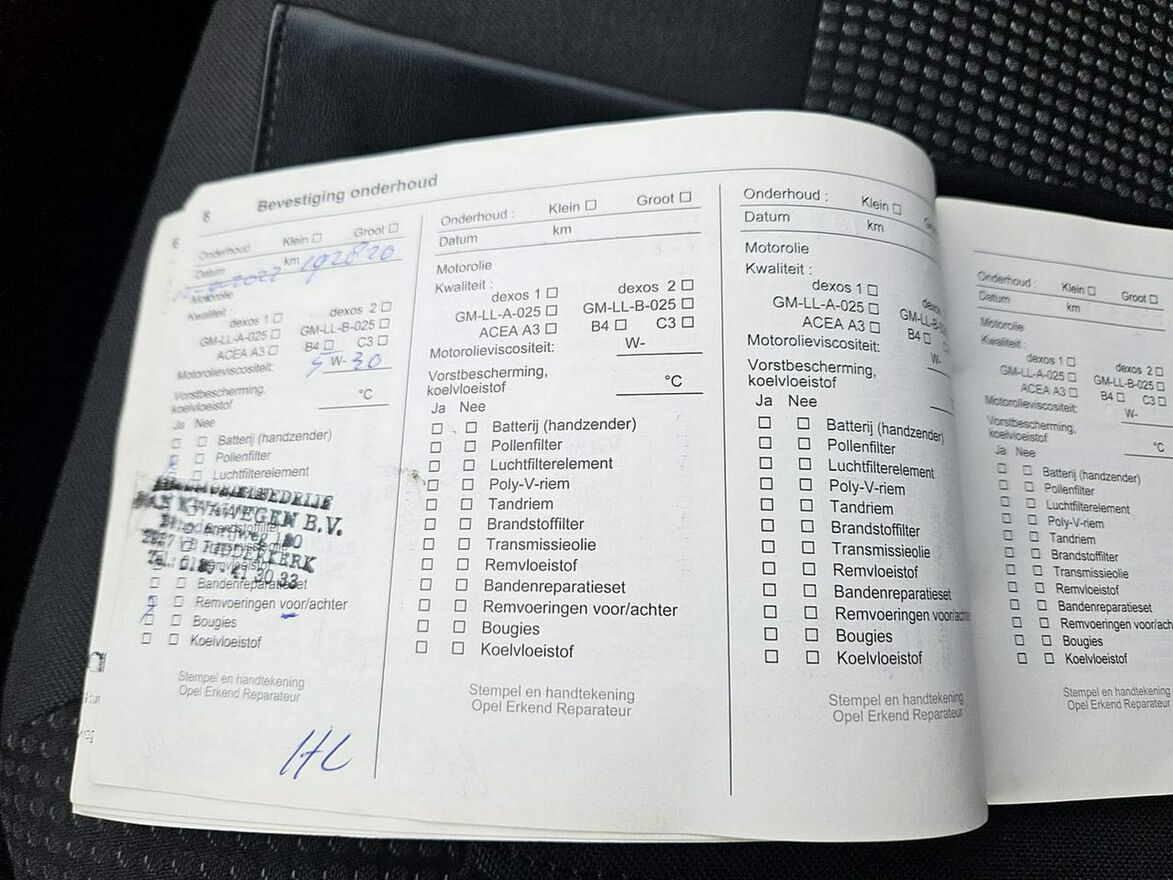 8 Bevestiging onderhoud
Onderhoud : Klein Groot
Datum km 192820
Motorolie
Kwaliteit :
dexos 1 dexos 2
GM-LL-A-025 GM-LL-B-025
ACEA A3 B4 C3
Motorolieviscositeit: 5 W- 30
Vorstbescherming,
koelvloeistof °C
Ja Nee
Batterij (handzender)
Pollenfilter
Luchtfilterelement
B.V.
Tel.:
Bandenreparatieset
Remvoeringen voor/achter
Bougies
Koelvloeistof
Stempel en handtekening
Opel Erkend Reparateur
HL
Onderhoud : Klein Groot
Datum km
Motorolie
Kwaliteit :
dexos 1 dexos 2
GM-LL-A-025 GM-LL-B-025
ACEA A3 B4 C3
Motorolieviscositeit: W-
Vorstbescherming,
koelvloeistof °C
Ja Nee
Batterij (handzender)
Pollenfilter
Luchtfilterelement
Poly-V-riem
Tandriem
Brandstoffilter
Transmissieolie
Remvloeistof
Bandenreparatieset
Remvoeringen voor/achter
Bougies
Koelvloeistof
Stempel en handtekening
Opel Erkend Reparateur
Onderhoud : Klein
Datum km
Motorolie
Kwaliteit :
dexos 1
GM-LL-A-025
ACEA A3 B4
Motorolieviscositeit: W-
Vorstbescherming,
koelvloeistof
Ja Nee
Batterij (handzender)
Pollenfilter
Luchtfilterelement
Poly-V-riem
Tandriem
Brandstoffilter
Transmissieolie
Remvloeistof
Bandenreparatieset
Remvoeringen voor/achter
Bougies
Koelvloeistof
Stempel en handtekening
Opel Erkend Reparateur
Onderhoud : Klein Groot
Datum km
Motorolie
Kwaliteit :
dexos 1 dexos 2
GM-LL-A-025 GM-LL-B-025
ACEA A3 B4 C3
Motorolieviscositeit: W-
Vorstbescherming,
koelvloeistof °C
Ja Nee
Batterij (handzender)
Pollenfilter
Luchtfilterelement
Poly-V-riem
Tandriem
Brandstoffilter
Transmissieolie
Remvloeistof
Bandenreparatieset
Remvoeringen voor/ach
Bougies
Koelvloeistof
Stempel en handtekening
Opel Erkend Reparateur